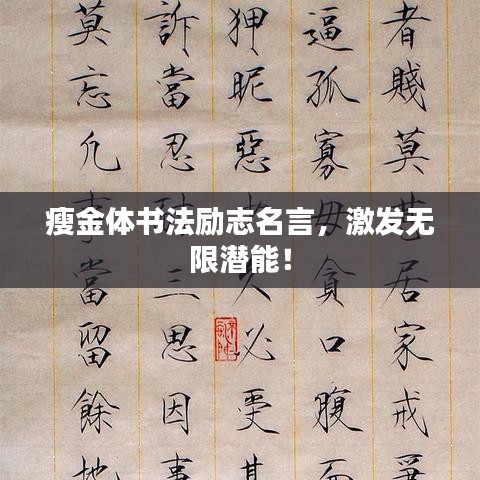 瘦金体书法励志名言，激发无
限潜能！
者賤莫居家戒
逼孤寡毋貪口腹而
狎昵惡久必受其
訴當忍三思因事
莫忘凡事當留餘地